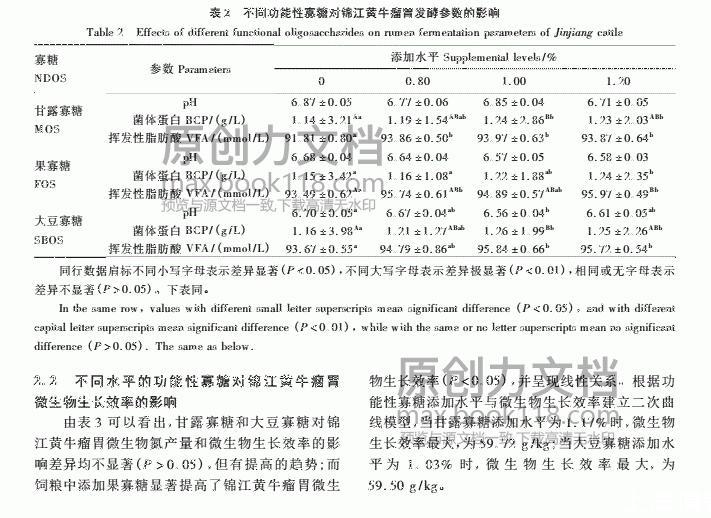 表 2 不同功能性寡糖对锦江黄牛瘤胃发酵参数的影响
Table 2 Effects of different functional oligosaccharides on rumen fermentation parameters of Jinjiang cattle
寡糖 NDOS 参数 Parameters 添加水平 Supplemental levels/%
0 0.80 1.00 1.20
甘露寡糖 MOS
pH 6.87±0.05 6.77±0.06 6.85±0.04 6.71±0.05
菌体蛋白 BCP/(g/L) 1.14±3.21Aa 1.19±1.54ABab 1.24±2.86Bb 1.23±2.03ABb
挥发性脂肪酸 VFA/(mmol/L) 91.81±0.80a 93.86±0.50b 93.97±0.63b 93.87±0.64b
果寡糖 FOS
pH 6.68±0.04 6.64±0.04 6.57±0.05 6.58±0.03
菌体蛋白 BCP/(g/L) 1.15±3.42a 1.16±1.08a 1.22±1.88ab 1.24±2.35b
挥发性脂肪酸 VFA/(mmol/L) 93.49±0.62Aa 95.74±0.61ABb 94.89±0.57ABab 95.97±0.49Bb
大豆寡糖 SBOS
pH 6.70±0.05a 6.67±0.04ab 6.56±0.04b 6.61±0.05ab
菌体蛋白 BCP/(g/L) 1.16±3.98Aa 1.21±1.27ABab 1.26±1.99Bb 1.25±2.26ABb
挥发性脂肪酸 VFA/(mmol/L) 93.67±0.55a 94.79±0.86ab 95.84±0.66b 95.72±0.54b
同行数据肩标不同小写字母表示差异显著(P<0.05),不同大写字母表示差异极显著(P<0.01),相同或无字母表示
差异不显著(P>0.05)。下表同。
In the same row, values with different small letter superscripts mean significant difference (P<0.05), and with different
capital letter superscripts mean significant difference (P<0.01), while with the same or no letter superscripts mean no significant
difference (P>0.05). The same as below.
2.2 不同水平的功能性寡糖对锦江黄牛瘤胃
微生物生长效率的影响
由表 3 可以看出,甘露寡糖和大豆寡糖对锦
江黄牛瘤胃微生物氮产量和微生物生长效率的影
响差异均不显著(P>0.05),但有提高的趋势;而
饲粮中添加果寡糖显著提高了锦江黄牛瘤胃微生
物生长效率(P<0.05),并呈现线性关系。根据功
能性寡糖添加水平与微生物生长效率建立二次曲
线模型,当甘露寡糖添加水平为 1.17%时,微生物
生长效率最大,为 59.72 g/kg;当大豆寡糖添加水
平为 1.03% 时,微生物生长效率最大,为
59.50 g/kg。
原创力文档
max.book118.com
预览与源文档一致,下载高清无水印
原创力文档
max.book118.com
预览与源文档一致,下载高清无水印